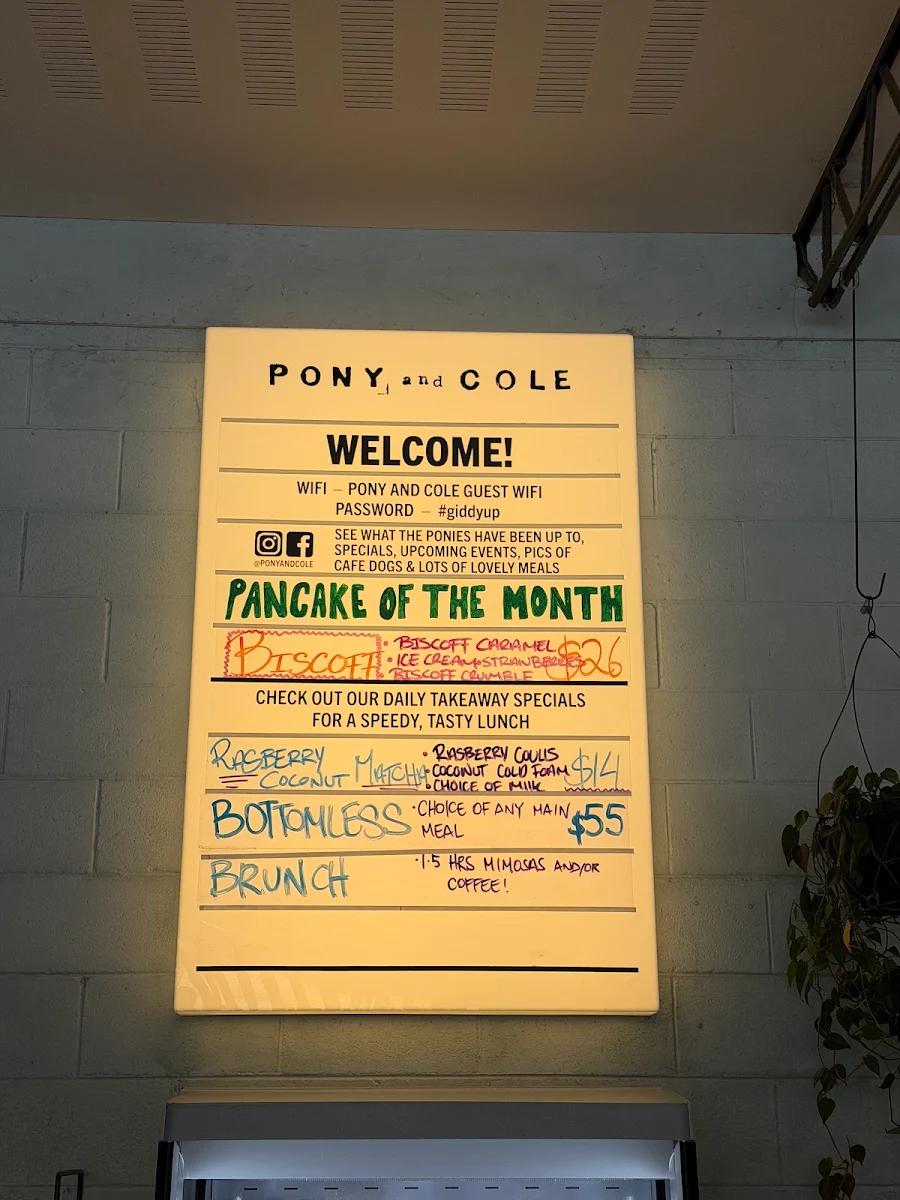 PONY and COLE
WELCOME!
WIFI – PONY AND COLE GUEST WIFI
PASSWORD – #giddyup
@PONYANDCOLE
SEE WHAT THE PONIES HAVE BEEN UP TO,
SPECIALS, UPCOMING EVENTS, PICS OF
CAFE DOGS & LOTS OF LOVELY MEALS
PANCAKE OF THE MONTH
BISCOFF
• BISCOFF CARAMEL
• ICE CREAM+STRAWBERRIES
• BISCOFF CRUMBLE
$26
CHECK OUT OUR DAILY TAKEAWAY SPECIALS
FOR A SPEEDY, TASTY LUNCH
RASBERRY
COCONUT MATCHA
• RASBERRY COULIS
• COCONUT COLD FOAM
• CHOICE OF MILK
$14
BOTTOMLESS
• CHOICE OF ANY MAIN
MEAL
$55
BRUNCH
• 1.5 HRS MIMOSAS AND/OR
COFFEE!